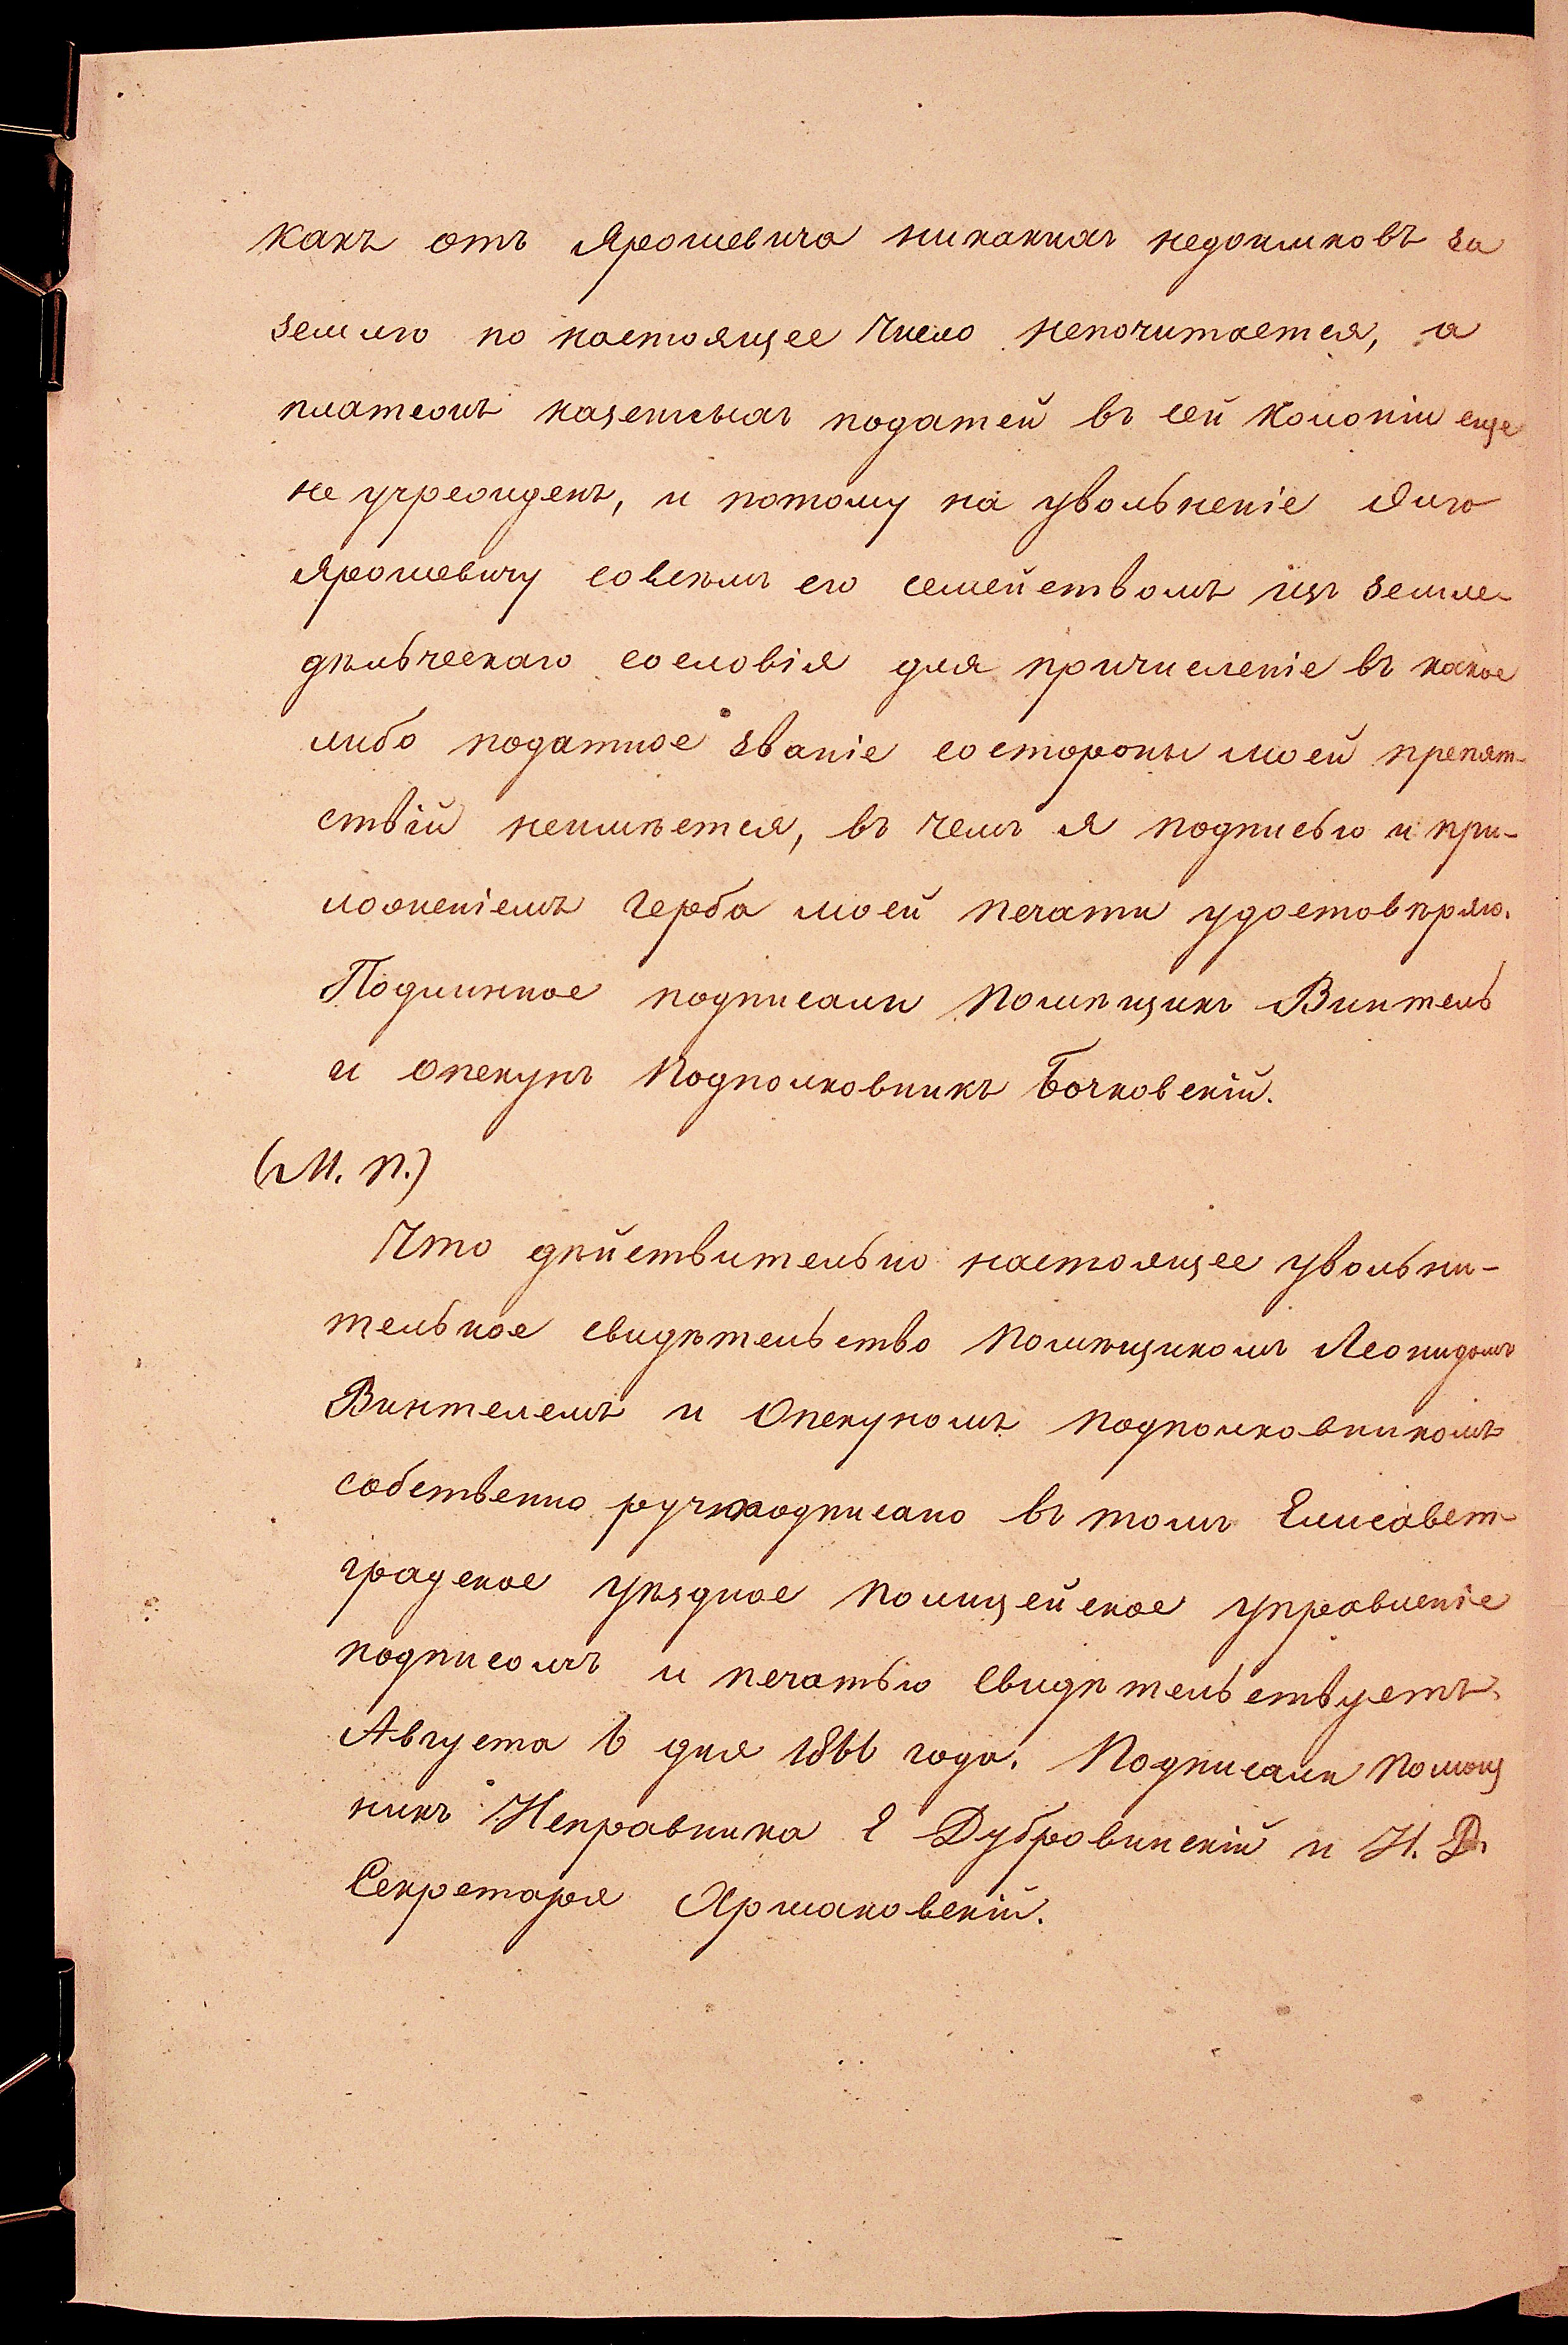 какъ отъ Ярошевича никакихъ недоимковъ за
землю по настоящее число непочитается, а
платежъ казенныхъ податей въ сей колоніи еще
не учрежденъ, и потому на увольненіе Яню
Ярошевичу совсѣмъ его семействомъ изъ земле-
дѣльческаго сословія для причисленіе въ какое
либо податное званіе состороны моей препят-
ствій неимѣется, въ чемъ я подписью и при-
ложеніемъ герба моей печати удостовѣряю.
Подлинное подписали Помѣщикъ Винтель
и Опекунъ Подполковникъ Бочковскій.
(М. П.)
Что дѣйствительно настоящее увольни-
тельное свидѣтельство Помѣщикомъ Леонидомъ
Винтелемъ и Опекуномъ Подполковникомъ
собственно ручноподписано въ томъ Елисавет-
градское уѣздное Полицейское управленіе
подписомъ и печатью свидѣтельствуетъ.
Августа 6 дня 1866 года. Подписали Помощ
никъ Исправника Е Дубровинскій и И. Д.
Секретаря Яршаковскій.